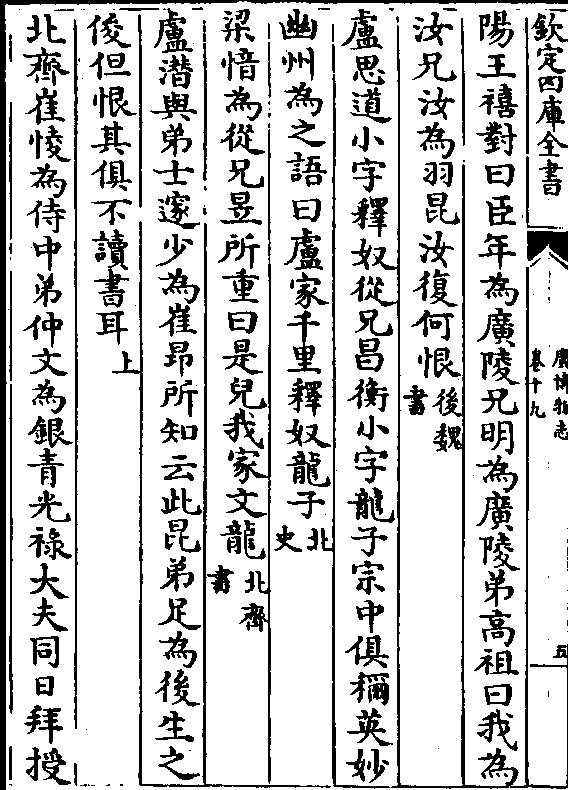 欽定四庫全書
廣博物志
卷十九
五
陽王禧對曰臣年為廣陵兄明為廣陵弟高祖曰我為
汝兄汝為羽昆汝復何恨後魏書
盧思道小字釋奴從兄昌衡小字龍子宗中俱稱英妙
幽州為之語曰盧家千里釋奴龍子北史
梁愔為從兄昱所重曰是兒我家文龍北齊書
盧潛與弟士邃少為崔昂所知云此昆弟足為後生之
俊但恨其俱不讀書耳上
北齊崔㥄為侍中弟仲文為銀青光祿大夫同日拜授